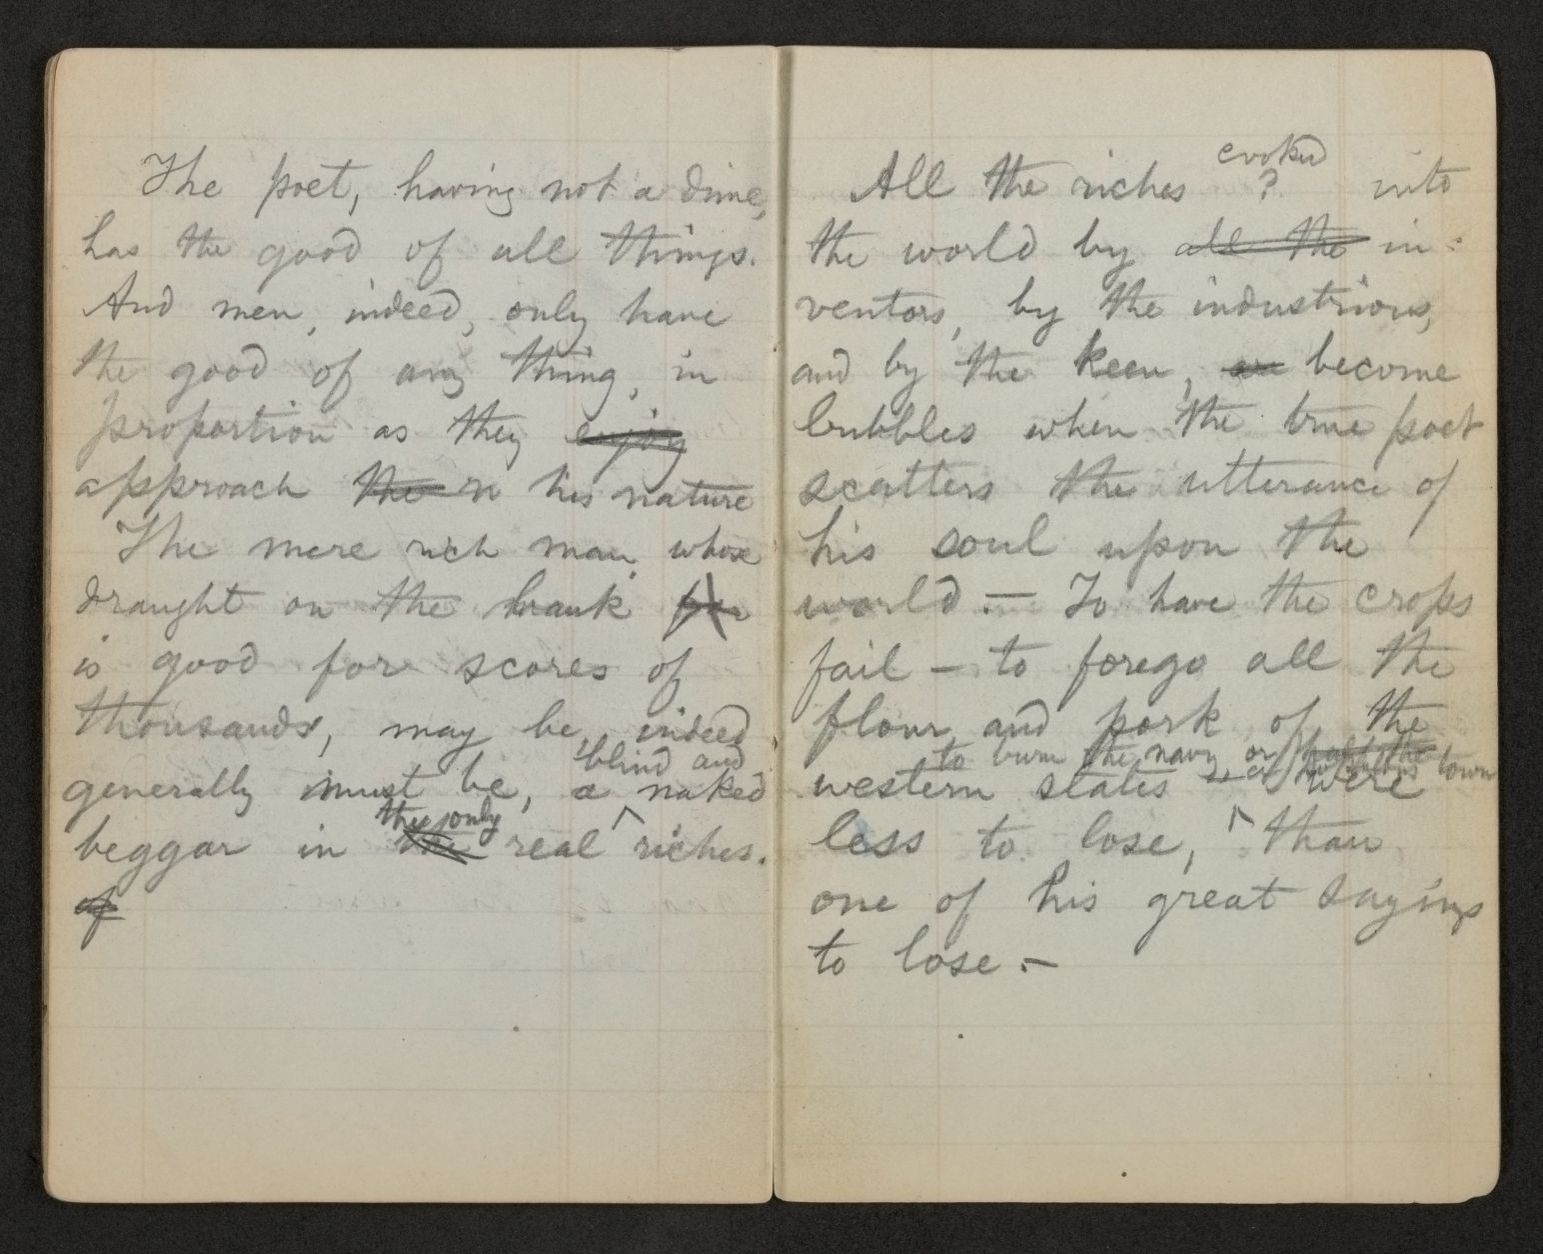 The poet, having not a dime,
has the good of all things.
And men, indeed, only have
the good of any thing, in
proportion as they enjoy
approach the n his nature
The mere rich man, whose
draught on the bank for
is good for scores of
thousands, may be, indeed
blind and
generally must be, a naked
the only
beggar in the real ^ riches.
of
evoked
All the riches ? into
the world by all the in-
ventors, by the industrious,
and by the keen, are become
bubbles when the true poet
scatters the utterance of
his soul upon the
world. — To have the crops
fail — to forego all the
flour and pork of the
to burn the navy, or half the town
western states were
less to lose, ^ than
one of his great sayings
to lose. —